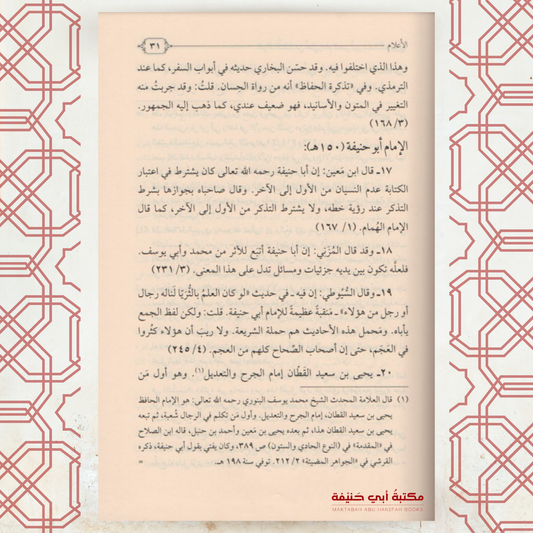 الأعلام
٣١
وهذا الذي اختلفوا فيه. وقد حسّن البخاري حديثه في أبواب السفر، كما عند
الترمذي. وفي «تذكرة الحفاظ» أنه من رواة الحِسان. قلتُ: وقد جربتُ منه
التغيير في المتون والأسانيد، فهو ضعيف عندي، كما ذهب إليه الجمهور.
(٣/ ١٦٨)
الإمام أبو حنيفة (١٥٠هـ):
١٧ـ قال ابن مَعين: إن أبا حنيفة رحمه الله تعالى كان يشترط في اعتبار
الكتابة عدم النسيان من الأول إلى الآخر. وقال صاحباه بجوازها بشرط
التذكر عند رؤية خطه، ولا يشترط التذكر من الأول إلى الآخر، كما قال
الإمام الهُمام. (١/ ١٦٧)
١٨ـ وقد قال المُزَني: إن أبا حنيفة أتبَع للأثر من محمد وأبي يوسف.
فلعلَّه تكون بين يديه جزئيات ومسائل تدل على هذا المعنى. (٣/ ٢٣١)
١٩ـ وقال السُّيوطي: إن فيه ـ في حديث «لو كان العلمُ بالثُّرَيَّا لَنَاله رجال
أو رجل من هؤلاء» ـ مَنقبةً عظيمةً للإمام أبي حنيفة. قلت: ولكن لفظ الجمع
يأباه. ومَحمل هذه الأحاديث هم حملة الشريعة. ولا ريبَ أن هؤلاء كثُروا
في العَجَم، حتى إن أصحاب الصِّحاح كلهم من العجم. (٤/ ٢٤٥)
٢٠ـ يحيى بن سعيد القَطَّان إمام الجرح والتعديل(١). وهو أول مَن
(١) قال العلامة المحدث الشيخ محمد يوسف البنوري رحمه الله تعالى: هو الإمام الحافظ
يحيى بن سعيد القطان، إمام الجرح والتعديل. وأول مَن تكلم في الرجال شُعبة، ثم تبعه
يحيى بن سعيد القطان هذا، ثم بعده يحيى بن مَعين وأحمد بن حنبل، قاله ابن الصلاح
في «المقدمة» في (النوع الحادي والستون) ص ٣٨٩، وكان يفتي بقول أبي حنيفة، ذكره
القرشي في «الجواهر المضيئة» ٢/ ٢١٢. توفي سنة ١٩٨ هـ. =
مكتبة أبي حنيفة
MAKTABAH ABU HANIFAH BOOKS